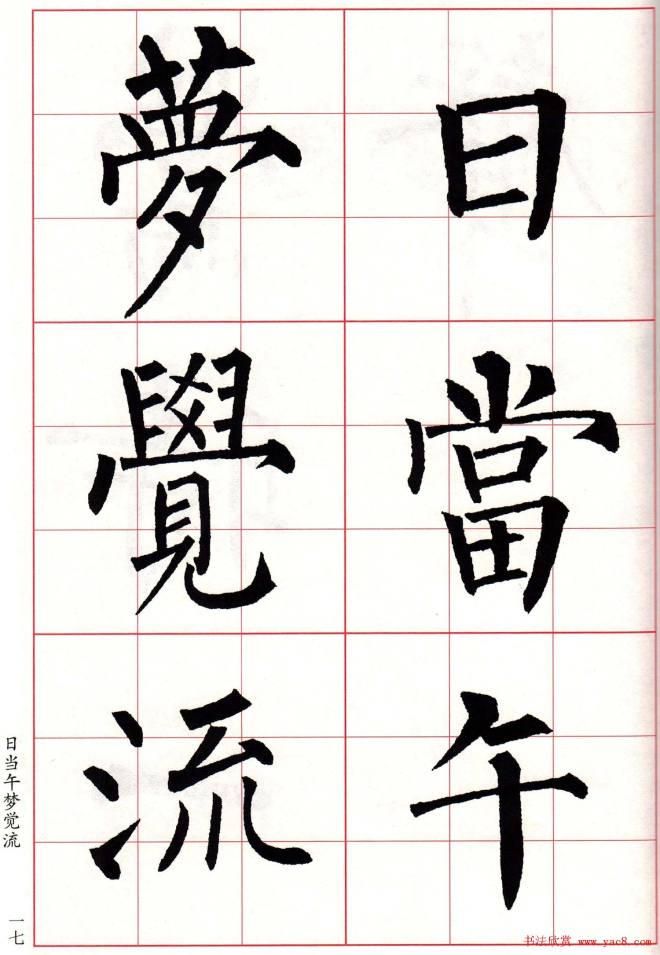 日當午
夢覺流
日当午梦觉流
一七
书法欣赏 www.yac8.com